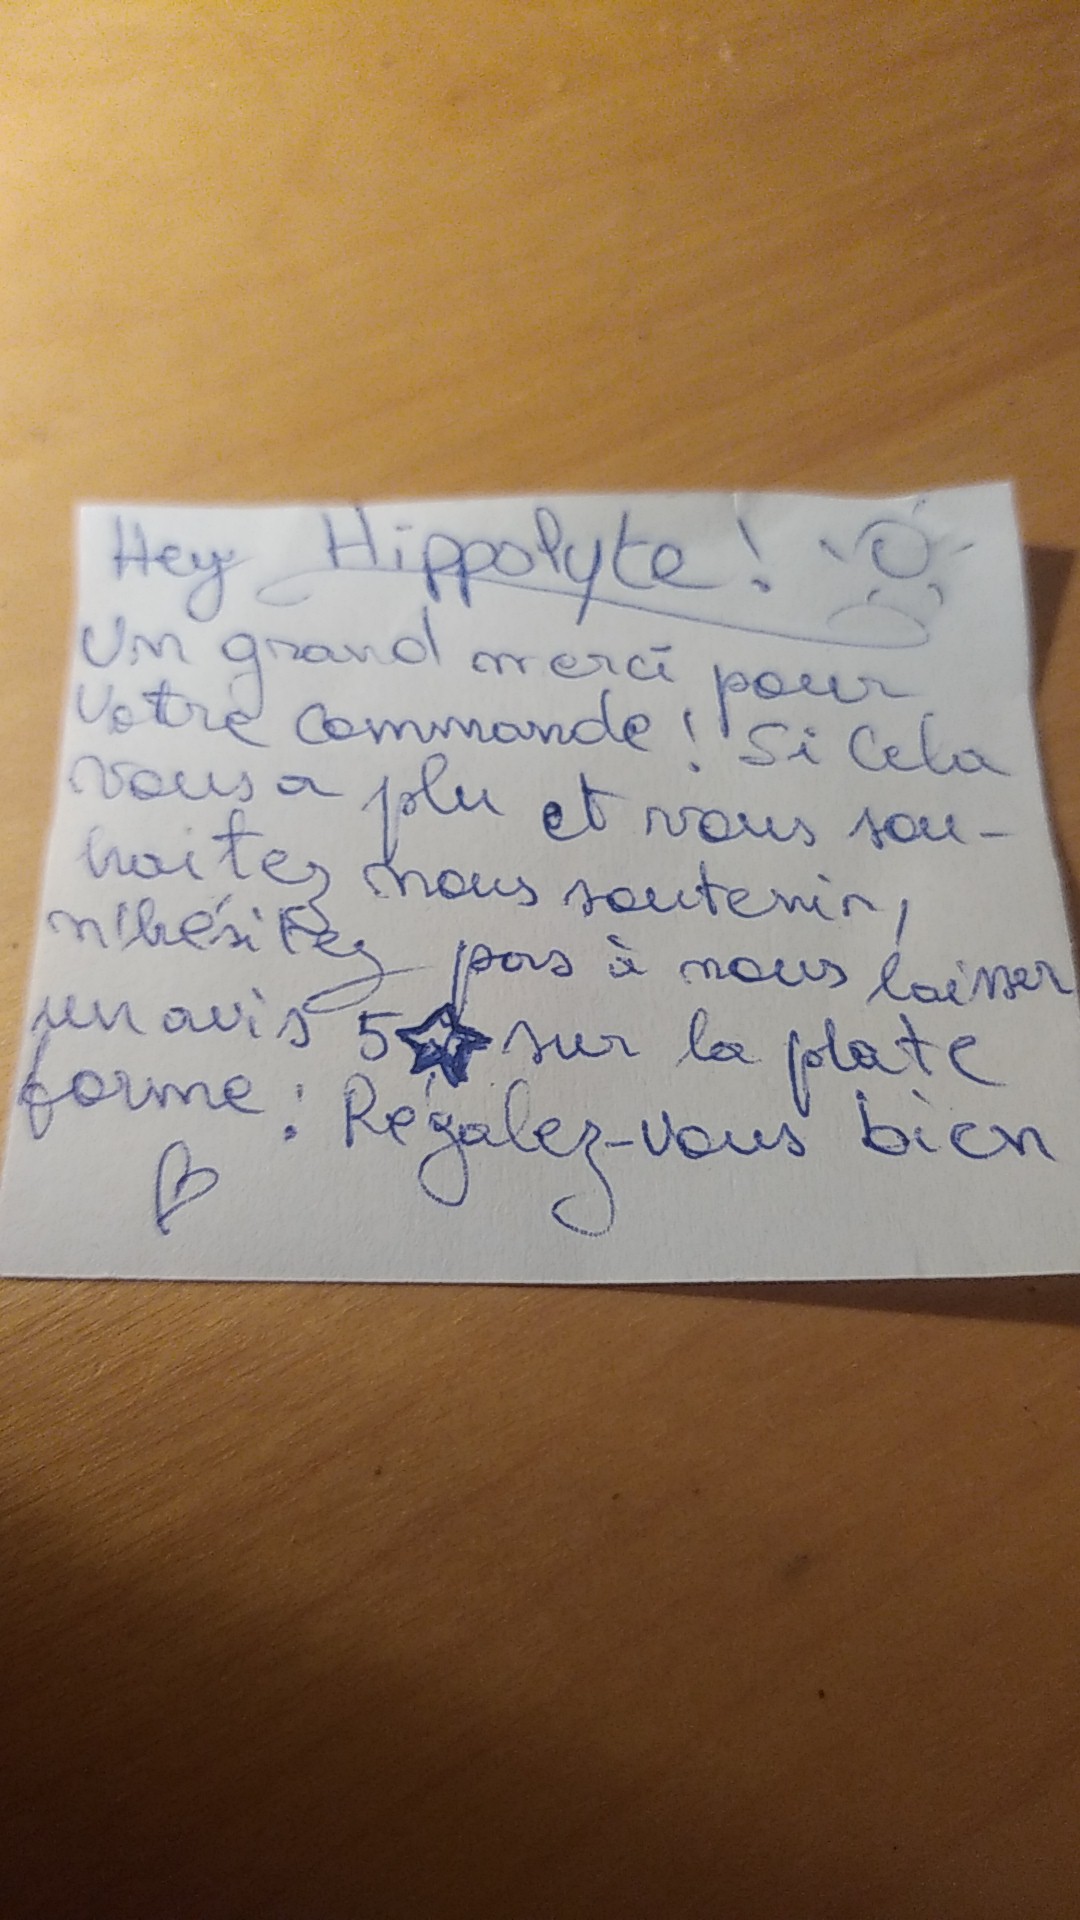 Hey Hippolyte !
Un grand merci pour
Votre commande ! Si Cela
vous a plu et vous sou-
haitez nous soutenir,
n'hésitez pas à nous laisser
un avis 5 sur la plate
forme : Régalez-vous bien